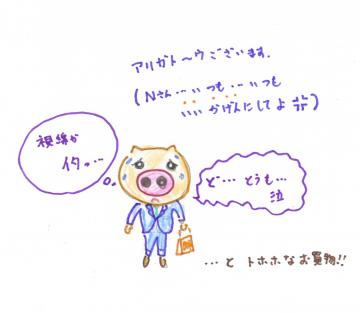 アリガト〜ウございます.
(Nさん…いつも…いつも
いいかげんにしてよ
視線が
イタっ…
ど…どうも…
泣
…と トホホなお買物!!